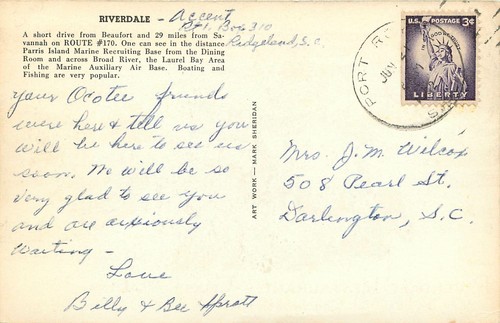 RIVERDALE - Accent
Rt 1 Box 310
Ridgeland, S.C.
A short drive from Beaufort and 29 miles from Sa-
vannah on ROUTE #170. One can see in the distance
Parris Island Marine Recruiting Base from the Dining
Room and across Broad River, the Laurel Bay Area
of the Marine Auxiliary Air Base. Boating and
Fishing are very popular.
your Ocotee friends
were here & tell us you
will be here to see us
soon. We will be so
very glad to see you
and are anxiously
waiting -
Love
Billy & Bee
ART WORK — MARK SHERIDAN
U.S. POSTAGE 3¢
IN GOD WE TRUST
LIBERTY
PORT R
JUN
Mrs. J. M. Wilcox
508 Pearl St.
Darlington, S.C.